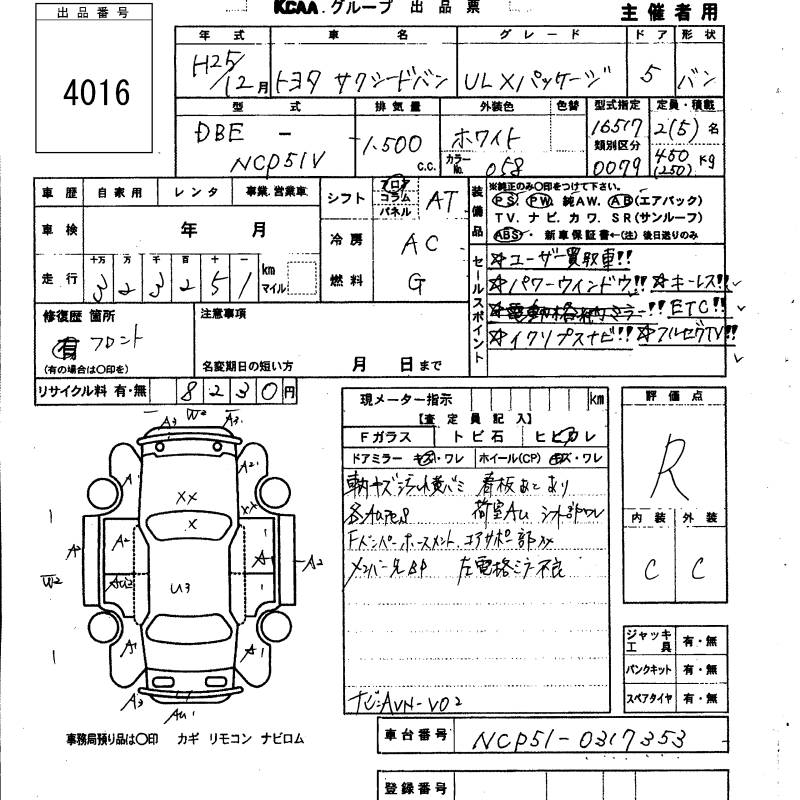 出品番号
4016
KCAA.グループ 出品票
主催者用
年式 車名 グレード ドア 形状
H25/12月 トヨタ サクシードバン ULXパッケージ 5 バン
型式 排気量 外装色 色替 型式指定 定員・積載
DBE - NCP51V
1.500 c.c.
ホワイト
カラーNo. 058
16517
類別区分
0079
2(5)名
450(250)Kg
車歴 自家用 レンタ 事業.営業車
車検 年 月
走行 十万 万 千 百 十 一
323251 km マイル
シフト フロア コラム パネル AT
冷房 AC
燃料 G
装備品
※純正のみ〇印をつけて下さい。
PS PW 純AW. AB(エアバック)
TV.ナビ.カワ.SR(サンルーフ)
ABS・新車保証書←(注)後日送りのみ
セールスポイント
☆ユーザー買取車!!
☆パワーウィンドウ!! ☆キーレス!!
☆電動格納ミラー!! ☆ETC!!
☆イクリプスナビ!! ☆フルセグTV!!
修復歴 箇所
有 フロント
(有の場合は〇印を)
注意事項
名変期日の短い方 月 日まで
リサイクル料 有・無 8230円
現メーター指示 km
【査定員記入】
Fガラス トビ石 ヒビワレ
ドアミラー キズ・ワレ ホイール(CP) キズ・ワレ
看板あとあり
荷室AU
左電格ミラ不良
ナビ:AVN-V02
評価点
R
内装 外装
C C
ジャッキ工具 有・無
パンクキット 有・無
スペアタイヤ 有・無
A3 W2 A3
A2 XX XX
X
A2 A1
A U2 U3 A2
W2
A1 A1
A3 AU1
事務局預り品は〇印 カギ リモコン ナビロム
車台番号 NCP51-0317353
登録番号